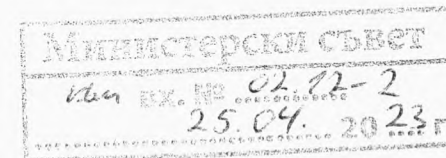 Министерски съвет
вх. № 02.12-2
25.04. 2023 г